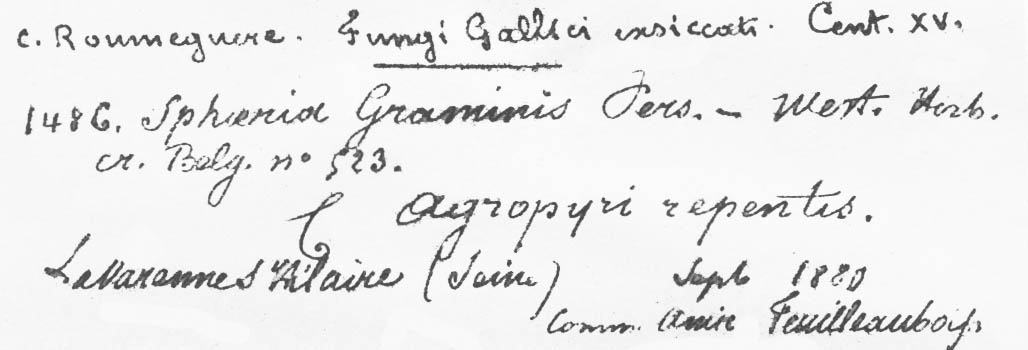 C. Roumeguere. Fungi Gallici exsiccati. Cent. XV.
1486. Sphæria Graminis Pers. — West. Herb.
cr. Belg. no 523.
Agropyri repentis.
La Varenne St Hilaire (Seine) Sept 1880
Comm. amic Feuilleaubois